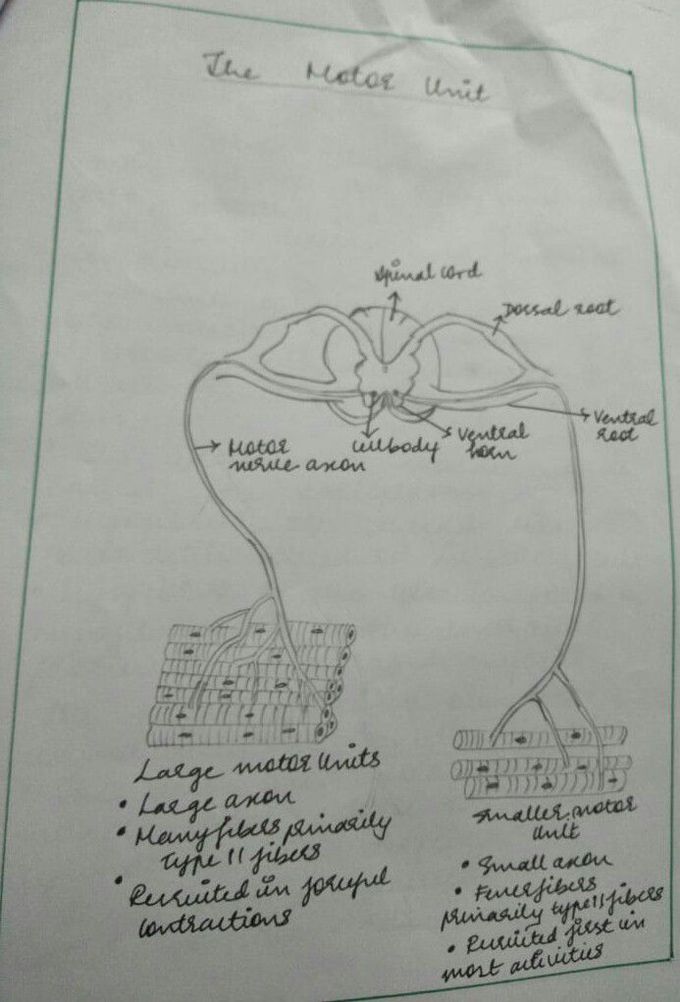 The Motor Unit
Spinal cord
Dorsal root
Ventral
root
Motor
nerve axon
Cellbody
Ventral
horn
Large motor Units
• Large axon
• Many fibers primarily
Type II fibers
• Recruited in forceful
contractions
Smaller motor
Unit
• Small axon
• Fewer fibers
primarily type II fibers
• Recruited first in
most activities